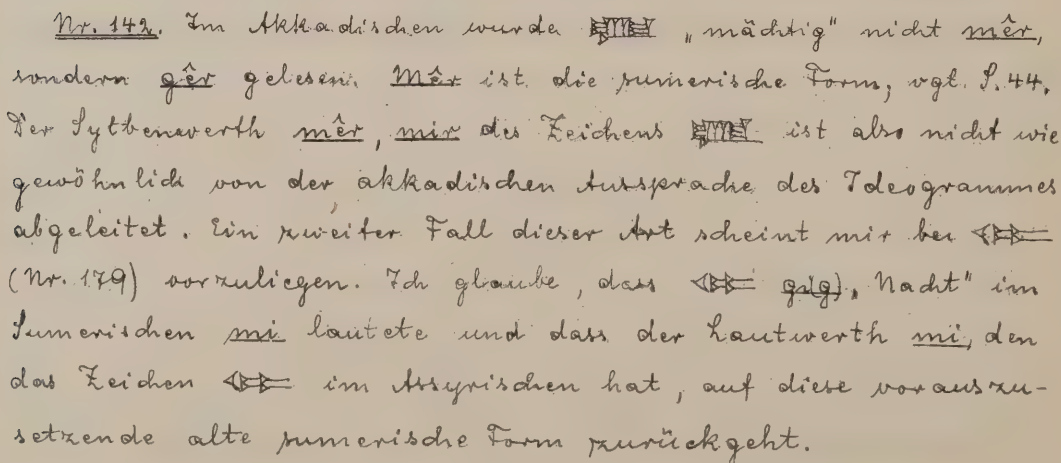 Nr. 142. Im Akkadischen wurde „mächtig" nicht mêr,
sondern gêr gelesen. Mêr ist die sumerische Form, vgl. S. 44.
Der Sylbenwerth mêr, mir des Zeichens ist also nicht wie
gewöhnlich von der akkadischen Aussprache des Ideogrammes
abgeleitet. Ein zweiter Fall dieser Art scheint mir bei
(Nr. 179) vorzuliegen. Ich glaube, dass gig) „Nacht" im
Sumerischen mi lautete und dass der Lautwerth mi, den
das Zeichen im Assyrischen hat, auf diese vorauszu-
setzende alte sumerische Form zurückgeht.